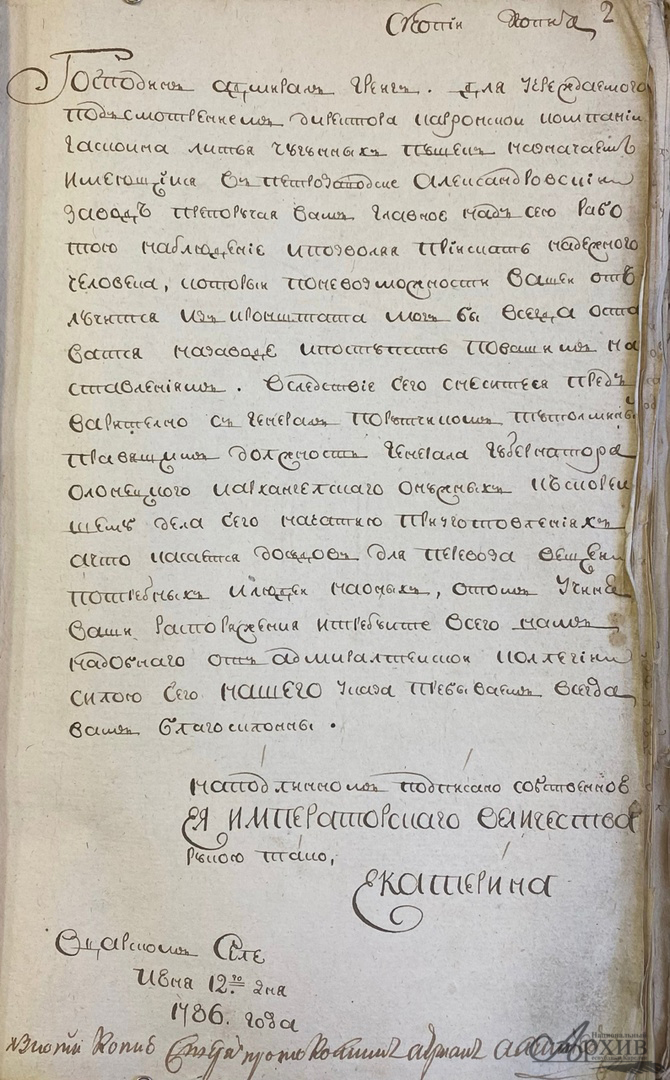 Скопiи Копиа 2
Господинъ адмиралъ Грейгъ. для Учреждаемого
подъсмотрениемъ директора каронской компанiи
Гаскоина литья чугунныхъ пушекъ назначаемъ
имеющiйся въ петрозаводске Александровский
заводъ препоручая вамъ главное надъ сею рабо
тою наблюденiе ипозволяя прiискать надежного
человека, который поневозможности вашей отъ
лучится изъ кронштата могъ бы всегда оста
ватся назаводе ипоступать повашимъ на
ставленiямъ. Вследствiе сего снеситеся предъ
варително съ Генералъ порутчикомъ тутолминымъ
правящимъ должность Генерала Губернатора
олонецкого иархангелскаго онужныхъ къскорей
шему дела сего начатию приуготовленiяхъ
ачто касается досудовъ для перевоза вещей
потребныхъ илюдей наоныхъ, отомъ учиня
ваши распоряжения итребуйте всего вамъ
надобнаго отъ адмиралтейской коллегiи
силою сего нашего указа пребываемъ всегда
вамъ благосклонны.
наподлинномъ подписано собственною
ЕЯ ИМПЕРАТОРСКАГО ВЕЛИЧЕСТВА
рукою тако,
ЕКАТЕРИНА
Вцарскомъ Селе
Июня 12го дня
1786. года
Копию
Национальный
АРХИВ